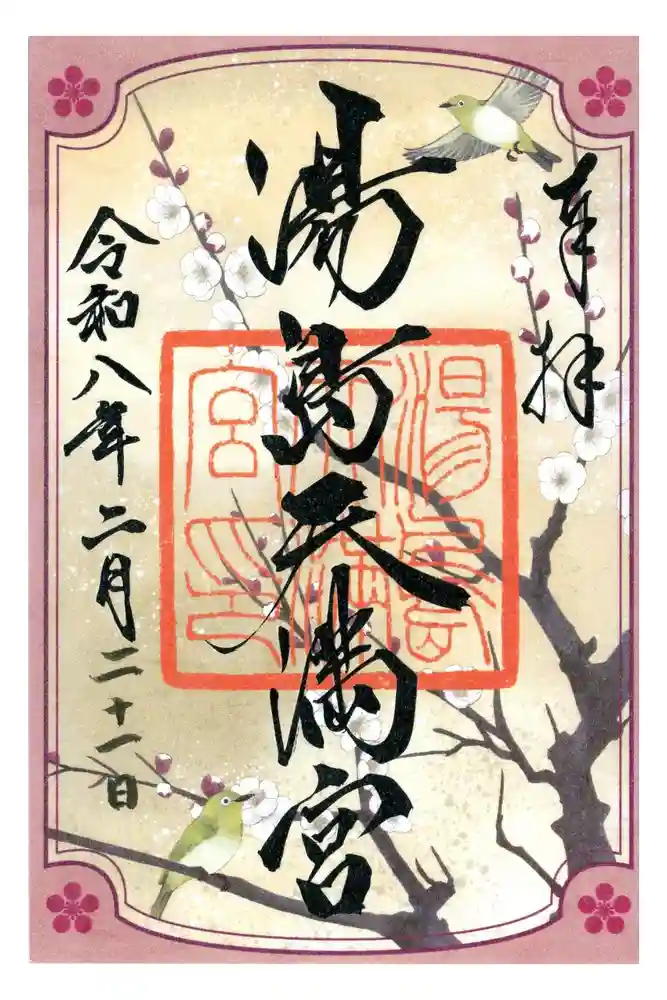 奉拝
湯島天満宮
湯島天満宮印
令和八年二月二十一日